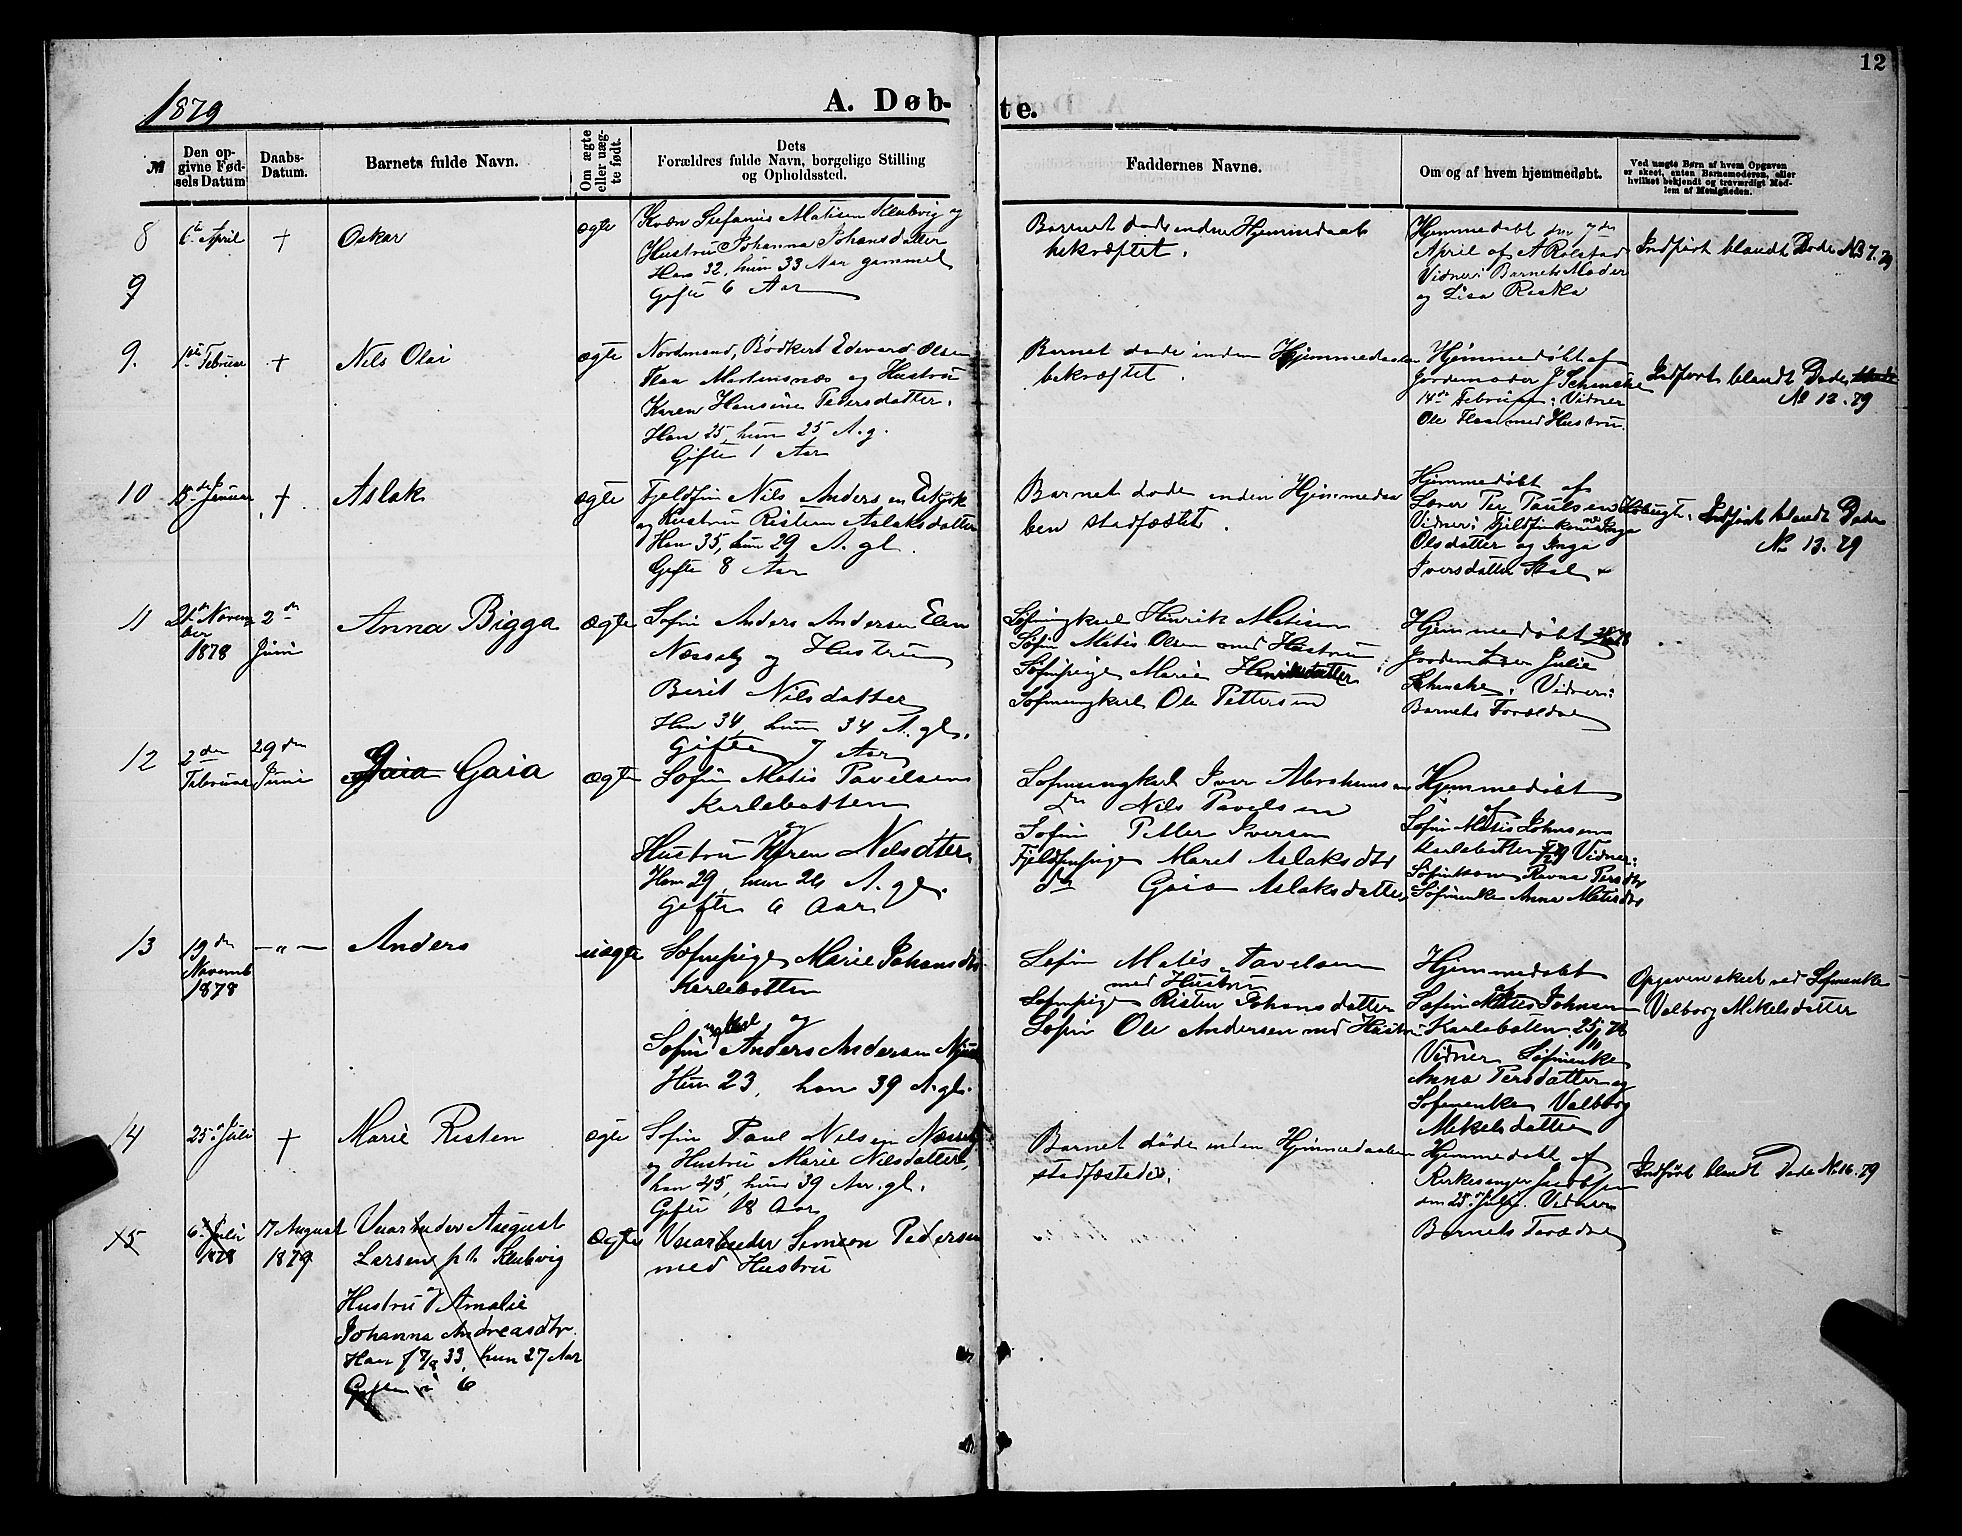 12
1879
A. Døb-
te.
№
Den op-
givne Fød-
sels Datum
Daabs-
Datum.
Barnets fulde Navn.
Om ægte
eller uæg-
te født.
Dets
Forældres fulde Navn, borgelige Stilling
og Opholdssted.
Faddernes Navne.
Om og af hvem hjemmedøbt.
Ved uægte Børn af hvem Opgaven
er skeet, enten Barnemoderen, eller
hvilket bekjendt og troværdigt Med-
lem af Menigheden.
8
6te April
+
Oskar
ægte
Kvæn Stefanus Matisen Klubvig og
Hustru Johanna Johansdatter
Han 32, hun 33 Aar gammel
Gifte 6 Aar
Barnet døde inden Hjemmedaab
bekræftet.
Hjemmedøbt den
April af A Rolstad
Vidner: Barnets Moder
og Lisa Raska
Indført blandt Døde No 7. 79
9
9.
Februar
+
Nils Olai
ægte
Nordmand, Bødker Edevard Olsen
Flaa Mortensnæs og Hustru
Karen Hansine Pedersdatter.
Han 25, hun 25 A. g.
Gifte 1 Aar
Barnet døde inden Hjemmedaaben
bekræftet.
Hjemmedøbt af
Jordemoder J Schanche
14de Februar: Vidner
Ole Flaa med Hustru.
Indført blandt Døde
No 12. 79
10
15de Januar
+
Aslak
ægte
Fjeldfin Nils Andersen
og Hustru Risten Aslaksdatter
Han 35, hun 29 A. gl.
Gifte 8 Aar
Barnet døde inden Hjemmedaa
ben stadfæstet.
Hjemmedøbt af
Lærer Per Paulsen
Vidner: Fjeldfinkone Inga
Olsdatter og Inga
Iversdatter
Indført blandt Døde
No 13. 79
11
21de Novem
ber
1878
2den
Juni
Anna Bigga
ægte
Søfin Anders Andersen Elen
Næsseby og Hustru
Berit Nilsdatter
Han 34, hun 34 A. gl.
Gifte 7 Aar
Søfinungkarl Hinrik Matisen
Søfin Matis Olsen med Hustru
Søfinpige Marie Henriksdatter
Søfinungkarl Ole Pettersen
Hjemmedøbt
Jordemoder Julie
Schanche. Vidner:
Barnets Forældre
12
2den
Februar
29den
Juni
Gaia Gaia
ægte
Søfin Matis Pavelsen
Karlebotten
og
Hustru Karen Nilsdtter
Han 29, hun 26 A. gl.
Gifte 6 Aar
Søfinungkarl Iver Abrahamsen
do Nils Pavelsen
Søfin Petter Iversen
Fjeldfinpige Maret Aslaksdtr
do Gaia Aslaksdatter
Hjemmedøbt
af
Søfin Matis Johnsen
Karlebotten Vidner:
Søfinkone Ravna Persdtr
Søfinenke Anna Matisdtr
13
19den
Novemb
1878
— " —
Anders
uægte
Søfinpige Marie Johansdtr
Karlebotten
og
Søfin ungkarl Anders Andersen
Hun 23, han 39 A. gl.
Søfin Matis Pavelsen
med Hustru
Søfinpige Risten Johansdatter
Søfin Ole Andersen med Hustru
Hjemmedøbt
af
Søfin Matis Johnsen
Karlebotten 25/11 78
Vidner Søfinenke
Anna Persdatter og
Søfinenke Valborg
Mikelsdatter
Opgaven skeet ved Søfinenke
Valborg Mikelsdatter
14
25de Juli
+
Marie Risten
ægte
Søfin Paul Nilsen Næsseby
og Hustru Marie Nilsdatter,
han 45, hun 39 Aar. gl.
Gifte 18 Aar
Barnet døde inden Hjemmedaaben
stadfæstedes.
Hjemmedøbt af
Kirkesanger Jacobsen
den 25de Juli. Vidner
Barnets Forældre
Indført blandt Døde No 16. 79
15
6te Juli
1878
17 August
1879
Vaarbuder August
Larsen p. t. Klubvig
og
Hustru Amalie
Johanna Andreasdtr.
Han f 7/9 33, hun 27 Aar
Gifte i 6
Ægte
Vaarbuder Simon Pedersen
med Hustru